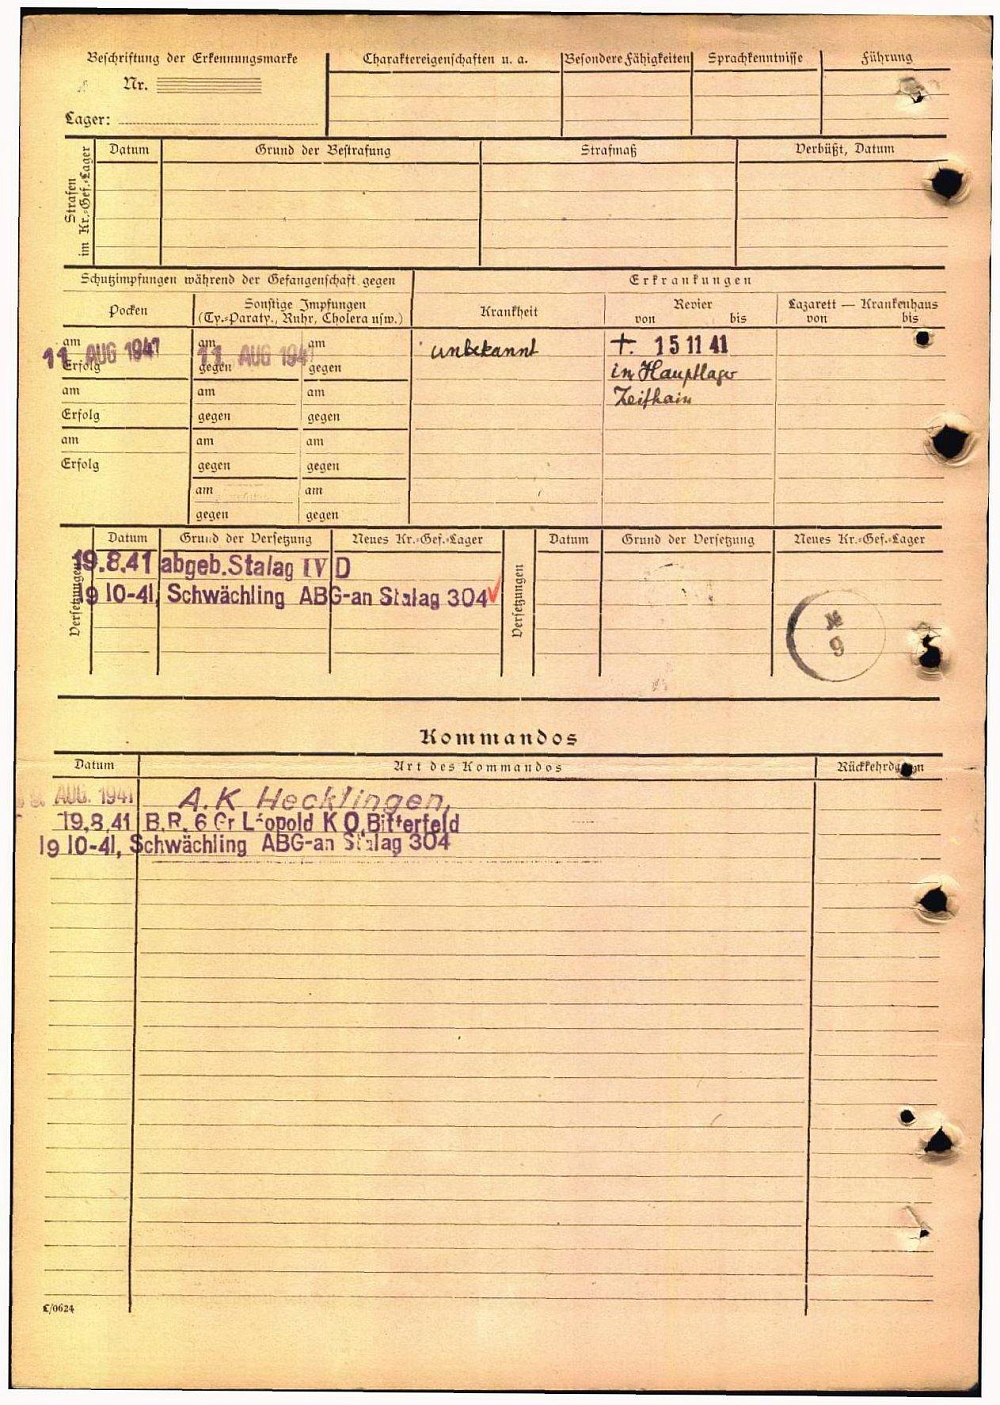 Beschriftung der Erkennungsmarke
Nr.
Lager:
Charaktereigenschaften u. a.
Besondere Fähigkeiten
Sprachkenntnisse
Führung
Strafen im Kr.-Gef.-Lager
Datum
Grund der Bestrafung
Strafmaß
Verbüßt, Datum
Schutzimpfungen während der Gefangenschaft gegen
Erkrankungen
Pocken
Sonstige Impfungen
(Ty.-Paraty., Ruhr, Cholera usw.)
Krankheit
Revier
von bis
Lazarett — Krankenhaus
von bis
am am am
11 AUG 1941 11 AUG 1941 unbekannt +. 15 11 41
Erfolg gegen gegen in Hauptlager
am am am Zeithain
Erfolg gegen gegen
am am am
Erfolg gegen gegen
am am
gegen gegen
Versetzungen
Datum Grund der Versetzung Neues Kr.-Gef.-Lager
19.8.41 abgeb. Stalag IV D
19 10-41, Schwächling ABG-an Stalag 304
Versetzungen
Datum Grund der Versetzung Neues Kr.-Gef.-Lager
№
9
Kommandos
Datum Art des Kommandos
AUG. 1941 A.K Hecklingen,
19.8.41 B.R. 6 Gr Leopold K O, Bitterfeld
19 10-41, Schwächling ABG-an Stalag 304
E/0624